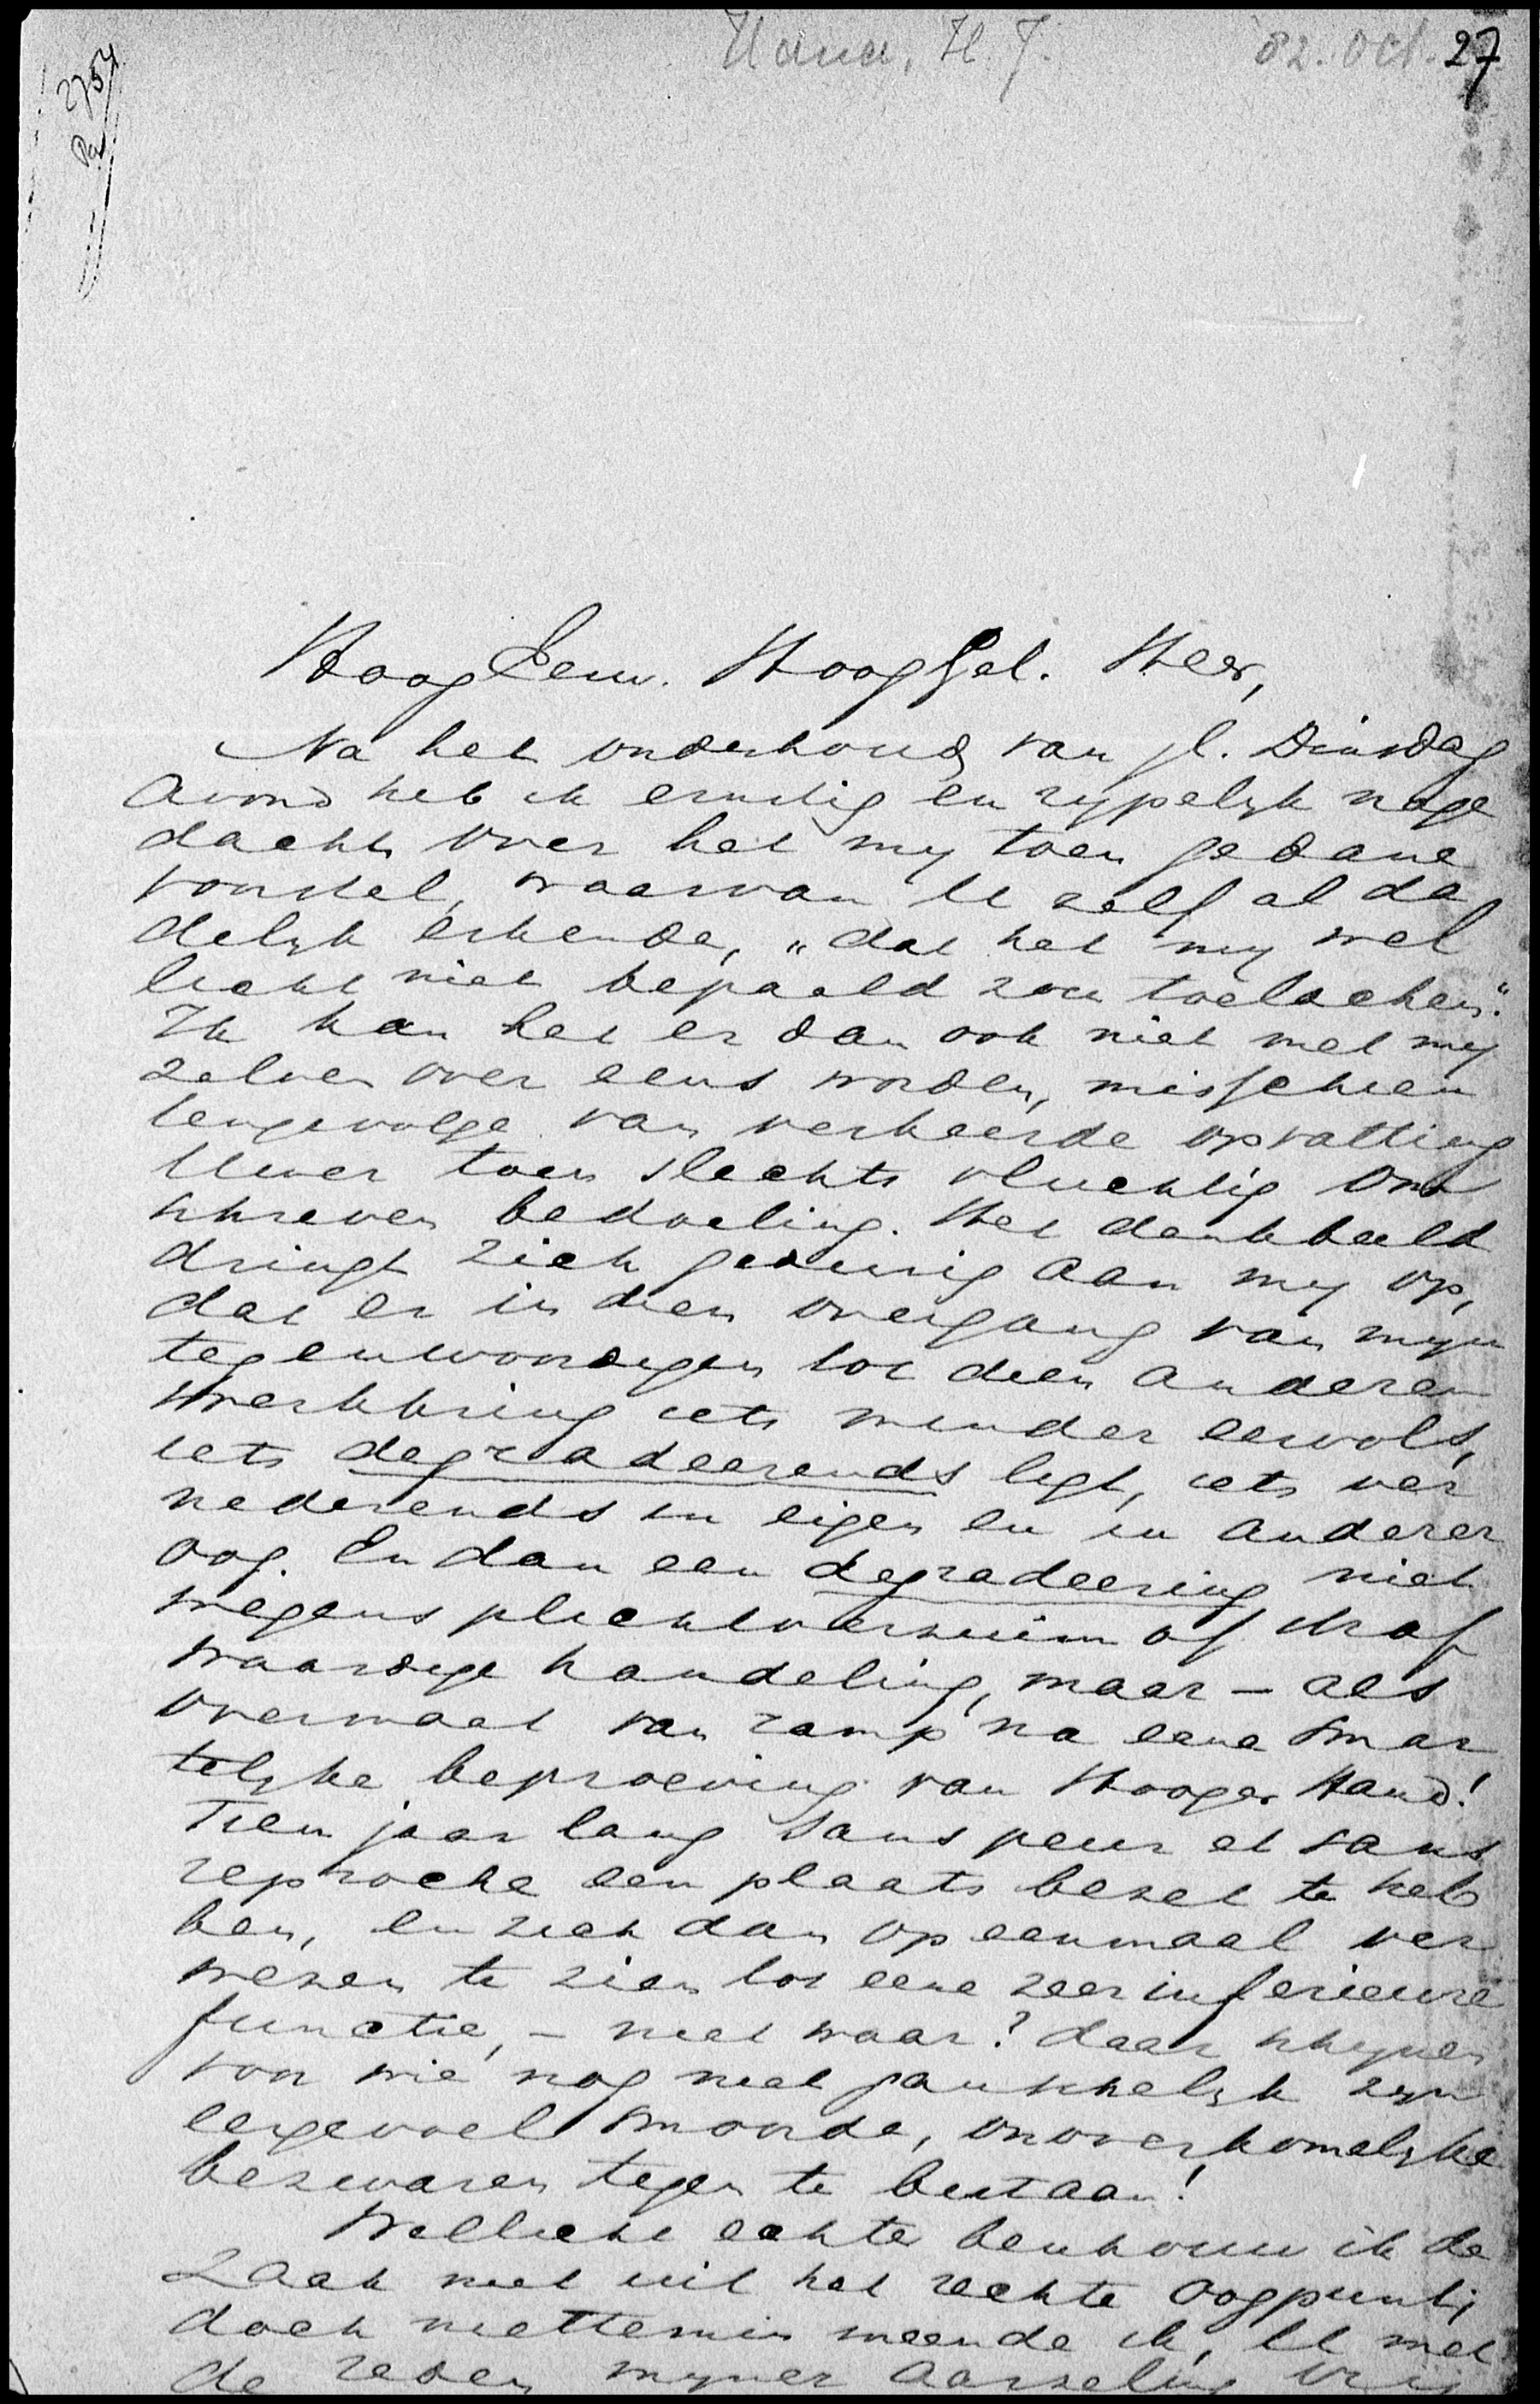 H. J.
82. Oct. 27
2754
HoogEerw. HoogGel. Heer,
Na het onderhoud van jl. Dinsdag
avond heb ik ernstig en rypelyk nage
dacht over het my toen gedane
voorstel, waarvan U zelf al da
delyk erkende, „dat het my wel
licht niet bepaald zou toelachen".
Ik kan het er dan ook niet met my
zelven over eens worden, misschien
tengevolge van verkeerde opvatting
Uwer toen slechts vluchtig om
schreven bedoeling. Het denkbeeld
dringt zich gedurig aan my op,
dat er in dien overgang van myn
tegenwoordigen tot dien anderen
werkkring iets minder eervols,
iets degradeerends ligt, iets ver
nederends in eigen en in anderer
oog. En dan een degradeering niet
wegens plichtverzuim of straf
waardige handeling, maar – als
overmaat van ramp na eene smar
telyke beproeving van Hooger Hand!
Tien jaar lang sans peur et sans
reproche een plaats bezet te heb
ben, en zich dan op eenmaal ver
wezen te zien tot eene zeer inferieure
functie, – niet waar? daar schynen
voor wie nog niet ganschelyk zyn
eergevoel smoorde, onoverkomelyke
bezwaren tegen te bestaan!
Wellicht echter beschouw ik de
zaak niet uit het rechte oogpunt;
doch niettemin meende ik, U met
de reden myner aarzeling